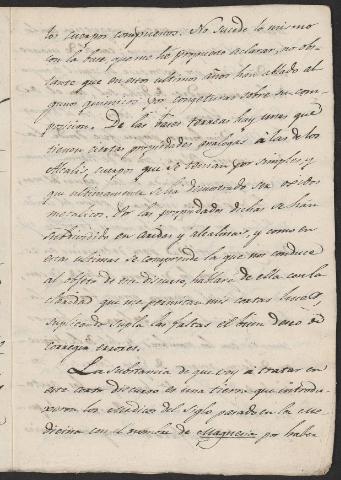 los cuerpos componentes. No sucede lo mismo
con la base, que me he propuesto aclarar, no obs-
tante que en estos ultimos años han ablado al
gunos quimicos por congeturas sobre su com-
posicion. De las bases terreas hay unas que
tienen ciertas propiedades analogas á las de los
Alcalis, cuerpos que se tenian por simples, y
que ultimamente se ha demostrado ser oxidos
metalicos. Por las propiedades dichas se han
subdividido en aridas y alcalinas, y como en
estas ultimas se comprende la que nos conduce
al objeto de mi discurso, hablaré de ella con la
claridad que me permitan mis cortas luces,
suplicando supla las faltas el buen deseo de
corregir errores.
La substancia de que voy á tratar en
este corto discurso es una tierra que introdu-
xeron los Medicos del Siglo pasado en la Me-
dicina con el nombre de Magnesia por haber